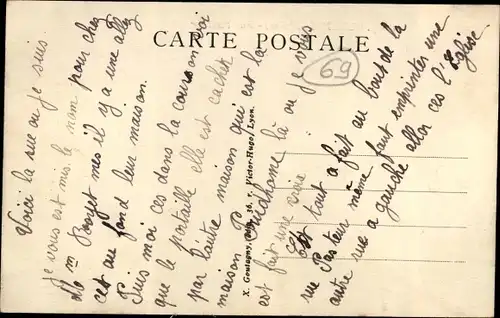 CARTE POSTALE
69
Voici la rue ou je suis.
Je vous est mis le nom pour chez
Mm Boozet mes il y a une allez
cet au fond leur maison.
Puis moi ces dans la cour on voi
que le portaille elle est cachez
par l'autre maison qui est la
maison Prudhome là ou je vous
est fait une croix
Est tout a fait au bout de la
rue Pasteur même faut emprinter une
autre rue a gauche alor ces l'Eglise.
X. Goutagny, 36, r. Victor-Hugo, Lyon.